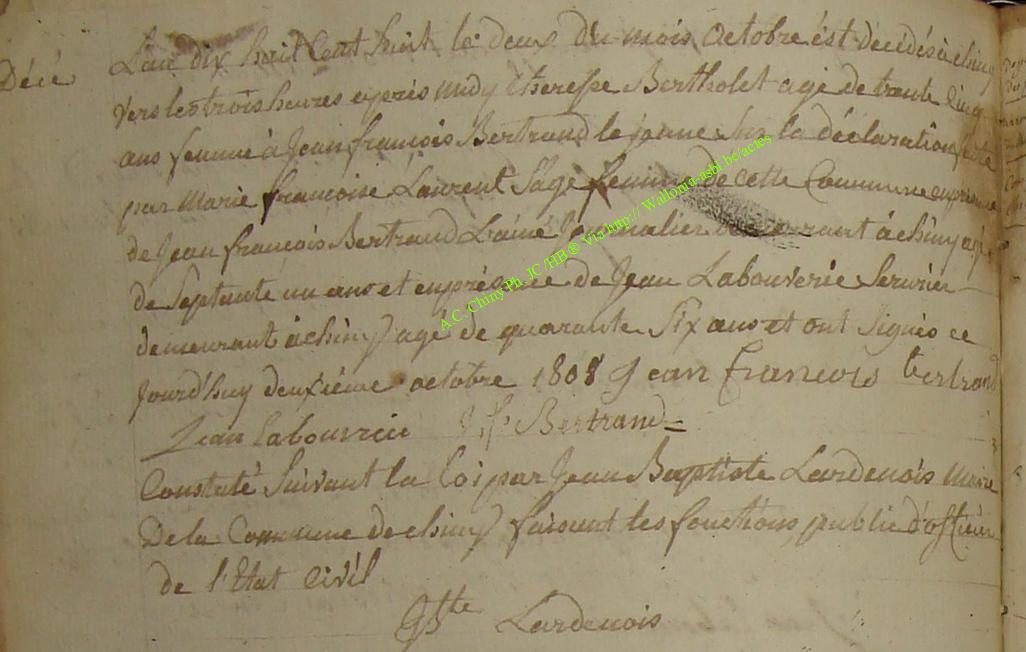 Décé
L'an dix huit Cent huit le deux Du mois Octobre est decidés à chiny
vers les trois heures après midy theresse Bertholet agé de trente Cinq
ans femme à Jean françois Bertrand le jeune sur la déclaration faite
par Marie françoise Laurent Sage femme de cette Commune en présence
de Jean françois Bertrand L'ainé Journalier à chiny agé
de Septante un ans et en présence de Jean Labouverie Serurier
demeurant à chiny agé de quarante Six ans et ont Signés ce
Jourd'huy deuxième octobre 1808 Jean francois bertrand
Jean labouvrie Bertrand
Constaté Suivant la loi par Jean Baptiste Lardenois Maire
De la Commune de chiny faisant les fonctions public d'officier
de l'Etat Civil
Jbte Lardenois
A.C. Chiny Ph. JC /HB ® Via http:// Wallonia-asbl.be/actes